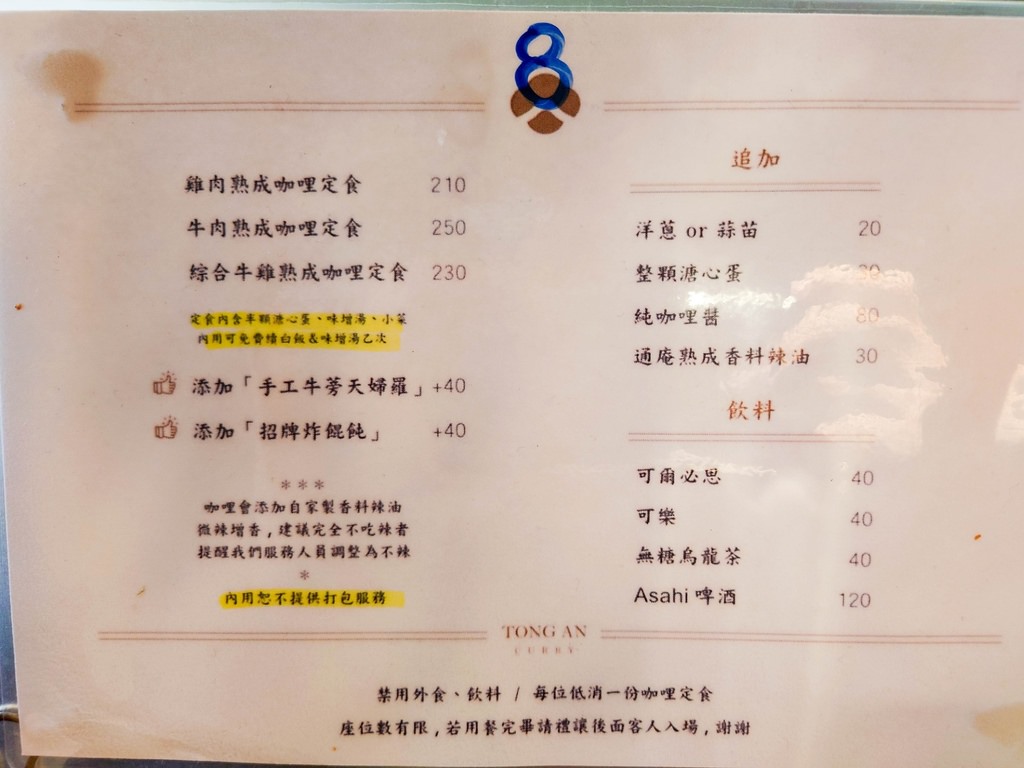 8
雞肉熟成咖哩定食 210
牛肉熟成咖哩定食 250
綜合牛雞熟成咖哩定食 230
定食內含半顆溏心蛋、味增湯、小菜
內用可免費續白飯&味增湯乙次
添加「手工牛蒡天婦羅」+40
添加「招牌炸餛飩」 +40
***
咖哩會添加自家製香料辣油
微辣增香,建議完全不吃辣者
提醒我們服務人員調整為不辣
*
內用恕不提供打包服務
追加
洋蔥 or 蒜苗 20
整顆溏心蛋 30
純咖哩醬 80
通庵熟成香料辣油 30
飲料
可爾必思 40
可樂 40
無糖烏龍茶 40
Asahi 啤酒 120
TONG AN
CURRY
禁用外食、飲料 / 每位低消一份咖哩定食
座位數有限,若用餐完畢請禮讓後面客人入場,謝謝